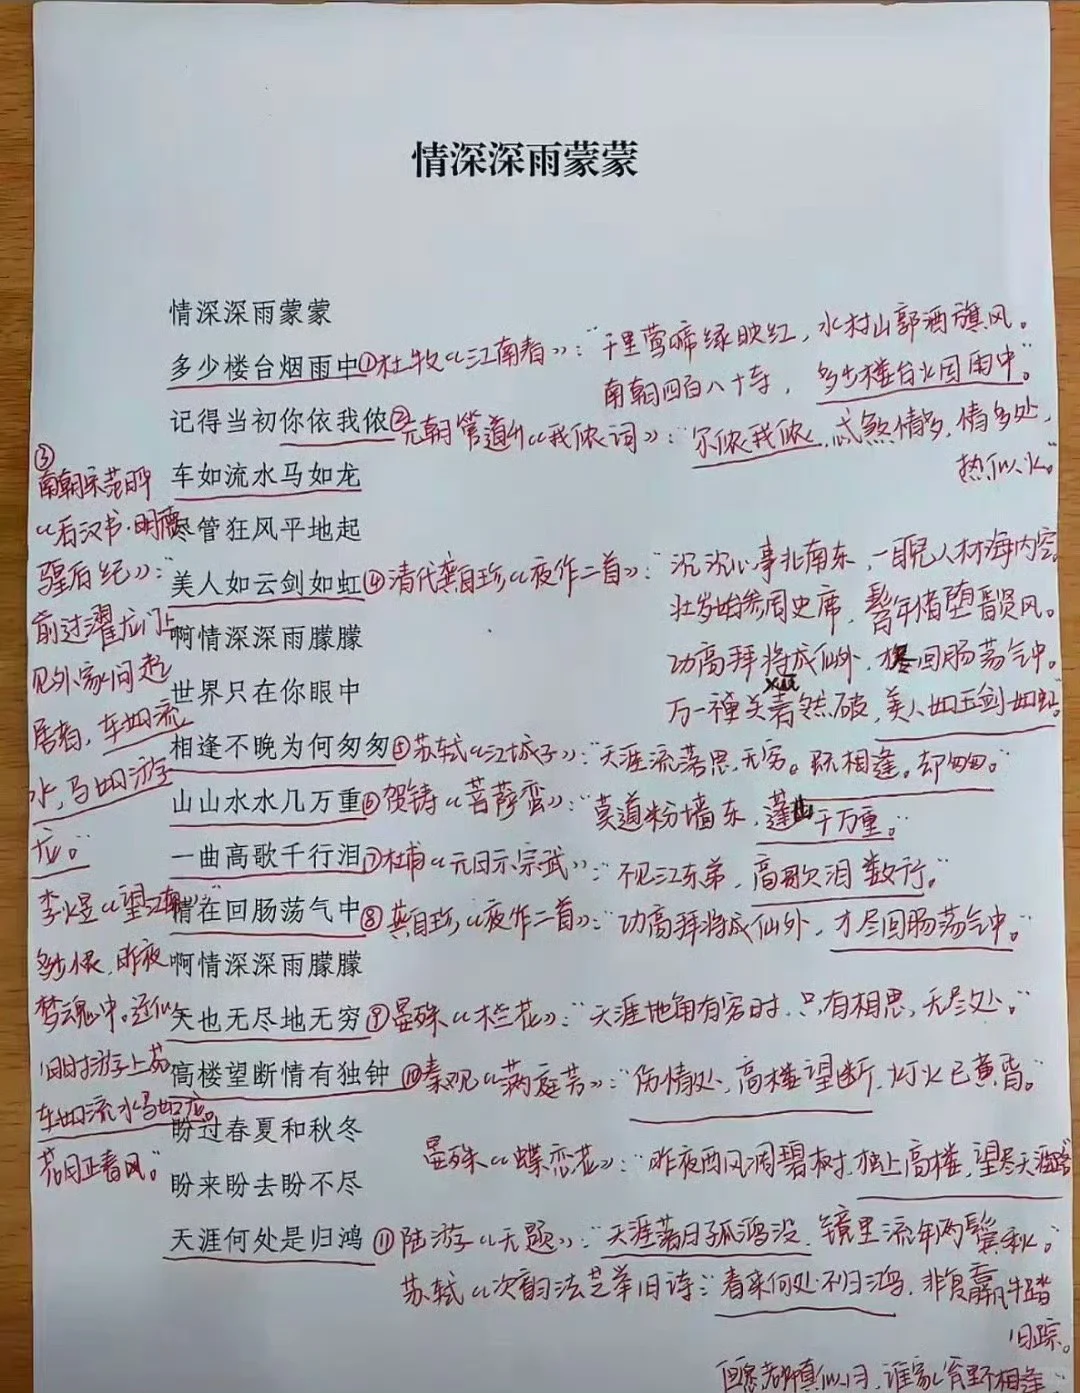 情深深雨蒙蒙
情深深雨蒙蒙
多少楼台烟雨中①杜牧《江南春》："千里莺啼绿映红，水村山郭酒旗风。
南朝四百八十寺，多少楼台烟雨中。"
记得当初你依我侬②元朝管道升《我侬词》："尔侬我侬，忒煞情多，情多处，
热似火。"
车如流水马如龙
尽管狂风平地起
美人如云剑如虹④清代龚自珍《夜作二首》："沉沉心事北南东，一睨人材海内空。
壮岁始参周史席，髫年惜堕晋贤风。
功高拜将成仙外，才尽回肠荡气中。
万一禅关砉然破，美人如玉剑如虹。"
xū
啊情深深雨朦朦
世界只在你眼中
相逢不晚为何匆匆⑤苏轼《江城子》："天涯流落思无穷。既相逢。却匆匆。"
山山水水几万重⑥贺铸《菩萨蛮》："莫道粉墙东，蓬山千万重。"
一曲高歌千行泪⑦杜甫《元日示宗武》："不见江东弟，高歌泪数行。"
情在回肠荡气中⑧龚自珍《夜作二首》："功高拜将成仙外，才尽回肠荡气中。"
啊情深深雨朦朦
天也无尽地无穷⑨晏殊《木兰花》："天涯地角有穷时，只有相思，无尽处。"
高楼望断情有独钟⑩秦观《满庭芳》："伤情处，高楼望断，灯火已黄昏。"
盼过春夏和秋冬
晏殊《蝶恋花》："昨夜西风凋碧树，独上高楼，望尽天涯路
盼来盼去盼不尽
天涯何处是归鸿⑪陆游《无题》："天涯落日孤鸿没，镜里流年两鬓秋。"
苏轼《次韵法芝举旧诗："春来何处不归鸿，非复羸牛踏
旧踪。
但愿老师真似月，谁家瓮里不相逢
③
南朝宋范晔
《后汉书·明德
皇后纪》："
前过濯龙门上
见外家问起
居者，车如流
水，马如游
龙。"
李煜《望江南》"
多少恨，昨夜
梦魂中。还似
旧时游上苑
车如流水马如龙。
花月正春风。"